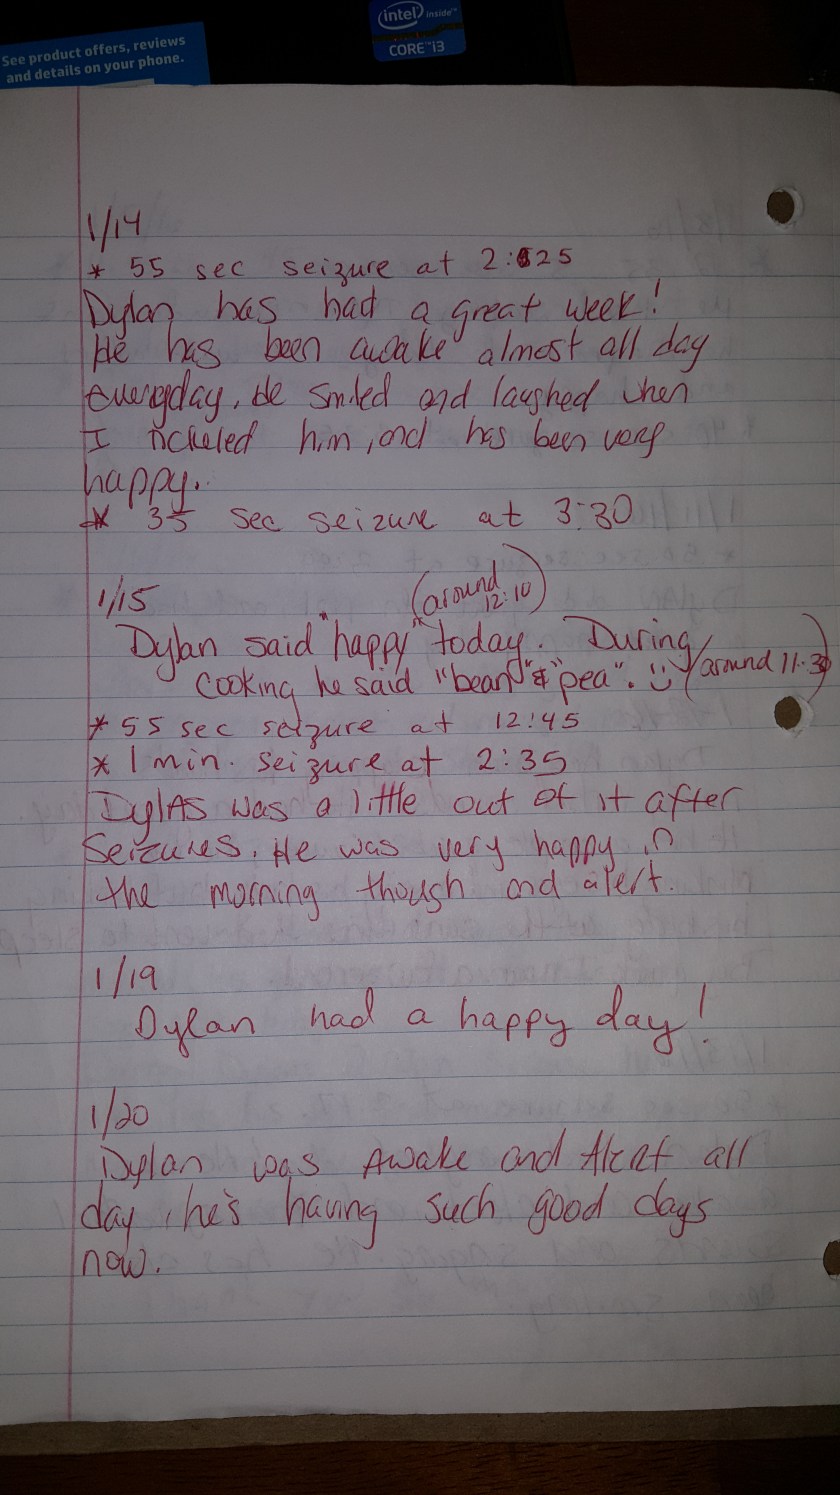 See product offers, reviews
and details on your phone.
intel inside™
CORE™i3
1/14
* 55 sec seizure at 2:25
Dylan has had a great week!
He has been awake almost all day
everyday. He smiled and laughed when
I tickeled him, and has been very
happy.
* 35 sec seizure at 3:30
1/15 (around 12:10)
Dylan said "happy" today. During
cooking he said "bean" & "pea". :) (around 11:30)
* 55 sec seizure at 12:45
* 1 min. seizure at 2:35
DylAS was a little out of it after
seizures. He was very happy in
the morning though and alert.
1/19
Dylan had a happy day!
1/20
Dylan was Awake and Alert all
day, he's having such good days
now.